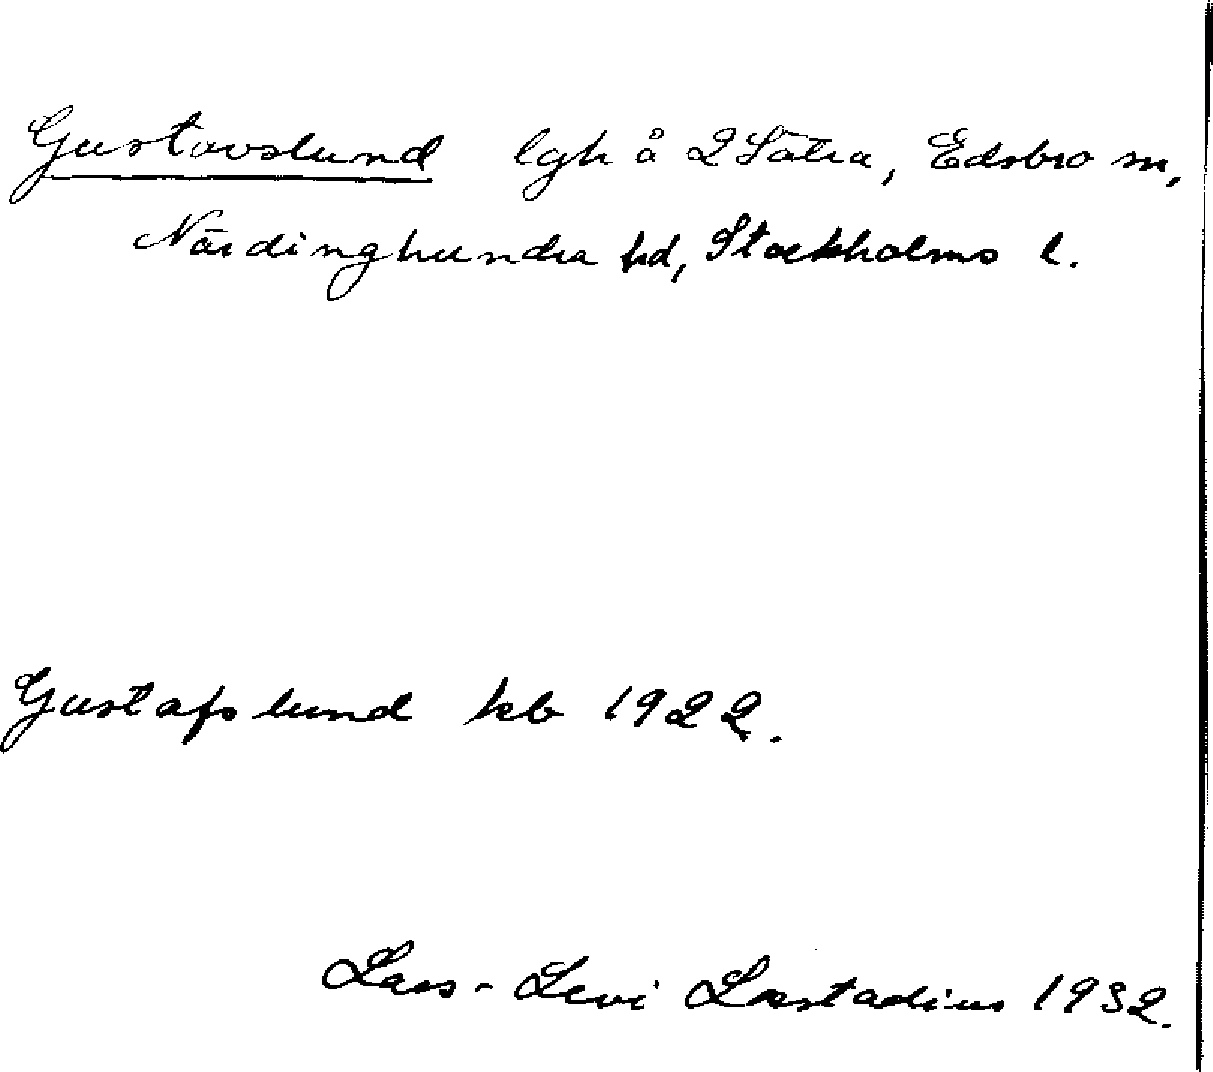 Gustavslund lgh å 2 Sätra, Edsbro sn,
Närdinghundra hd, Stockholms l.
Gustafslund kb 1922.
Lars-Levi Læstadius 1932.